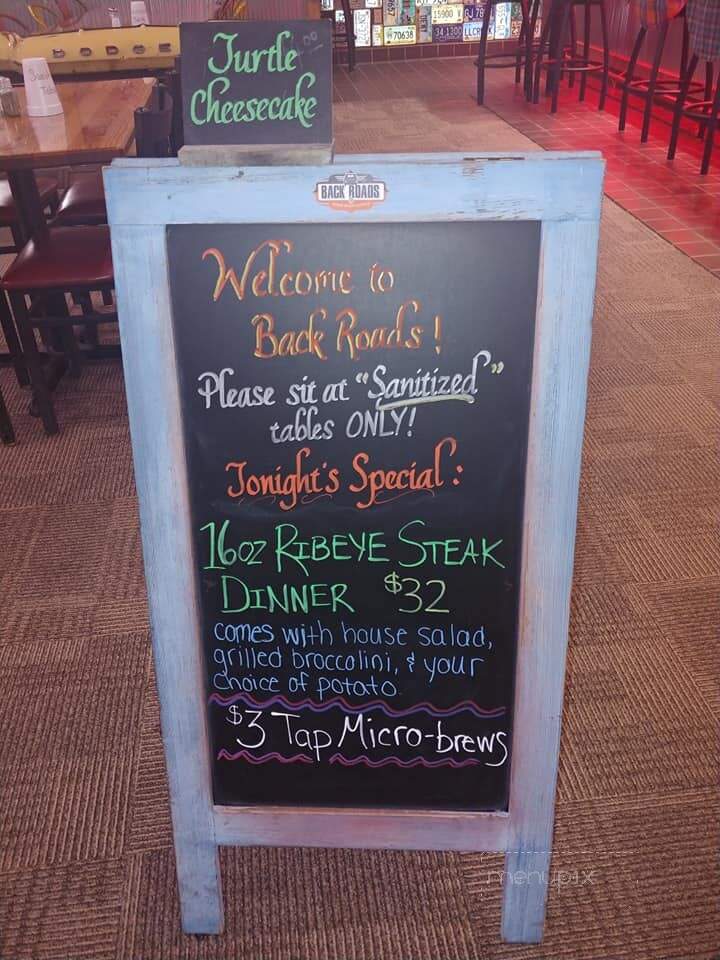 Turtle
Cheesecake
BACK ROADS
Welcome to
Back Roads!
Please sit at "Sanitized"
tables ONLY!
Tonight's Special:
16oz RIBEYE STEAK
DINNER $32
comes with house salad,
grilled broccolini, & your
choice of potato.
$3 Tap Micro-brews
70638
15900
34·1300
menupix